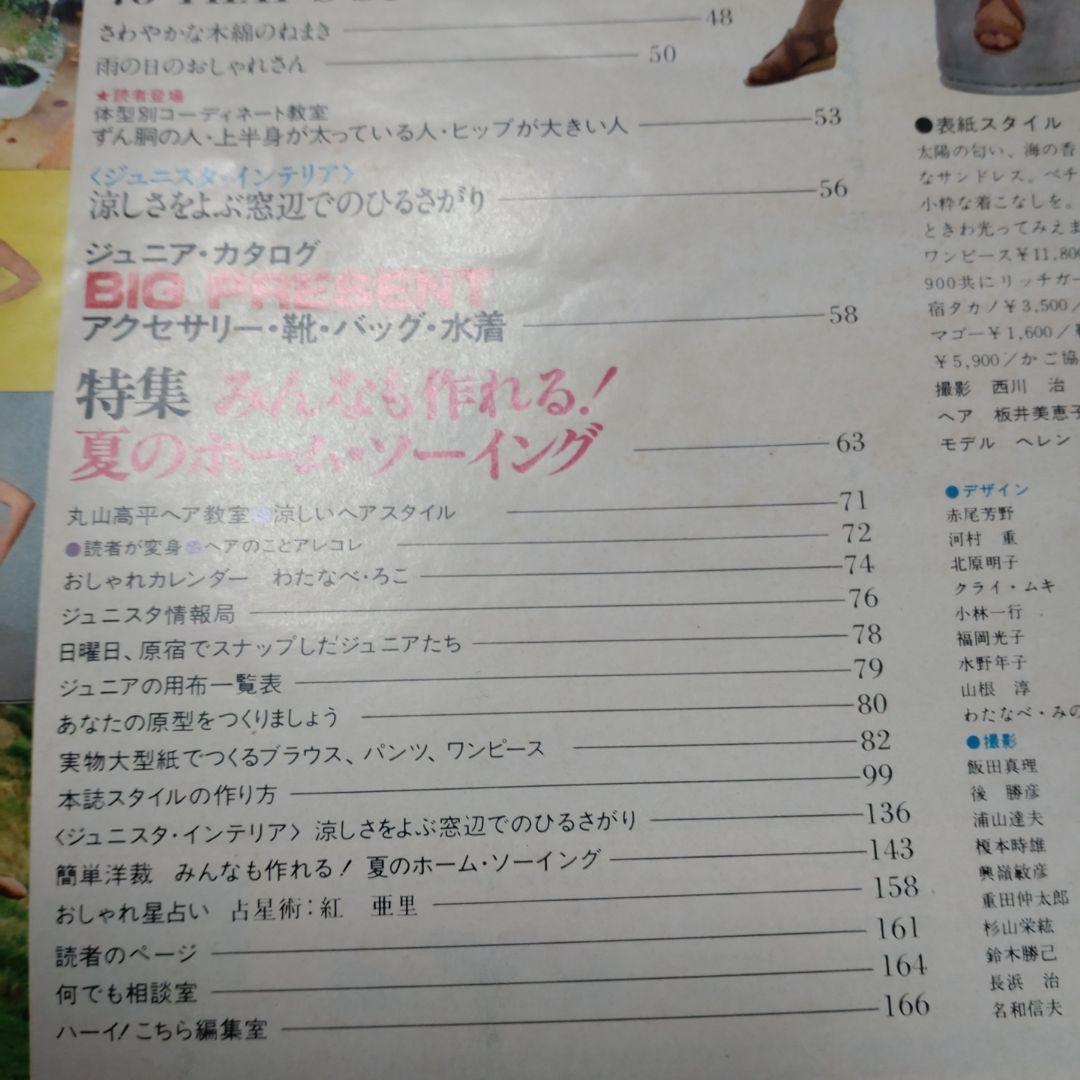 さわやかな木綿のねまき 48
雨の日のおしゃれさん 50
★読者登場
体型別コーディネート教室
ずん胴の人・上半身が太っている人・ヒップが大きい人 53
〈ジュニスタ・インテリア〉
涼しさをよぶ窓辺でのひるさがり 56
ジュニア・カタログ
BIG PRESENT
アクセサリー・靴・バッグ・水着 58
特集 みんなも作れる!
夏のホーム・ソーイング 63
丸山高平ヘア教室 涼しいヘアスタイル 71
●読者が変身 ヘアのことアレコレ 72
おしゃれカレンダー わたなべ・ろこ 74
ジュニスタ情報局 76
日曜日、原宿でスナップしたジュニアたち 78
ジュニアの用布一覧表 79
あなたの原型をつくりましょう 80
実物大型紙でつくるブラウス、パンツ、ワンピース 82
本誌スタイルの作り方 99
〈ジュニスタ・インテリア〉 涼しさをよぶ窓辺でのひるさがり 136
簡単洋裁 みんなも作れる! 夏のホーム・ソーイング 143
おしゃれ星占い 占星術:紅 亜里 158
読者のページ 161
何でも相談室 164
ハーイ!こちら編集室 166
●表紙スタイル
太陽の匂い、海の香
なサンドレス。ペチ
小粋な着こなしを。
ときわ光ってみえま
ワンピース¥11,800
900共にリッチガー
宿タカノ¥3,500/
マゴー¥1,600/
¥5,900/かご協
撮影 西川 治
ヘア 板井美恵子
モデル ヘレン
●デザイン
赤尾芳野
河村 重
北原明子
クライ・ムキ
小林一行
福岡光子
水野年子
山根 淳
わたなべ・みの
●撮影
飯田真理
後 勝彦
浦山達夫
榎本時雄
興嶺敏彦
重田仲太郎
杉山栄紘
鈴木勝己
長浜 治
名和信夫